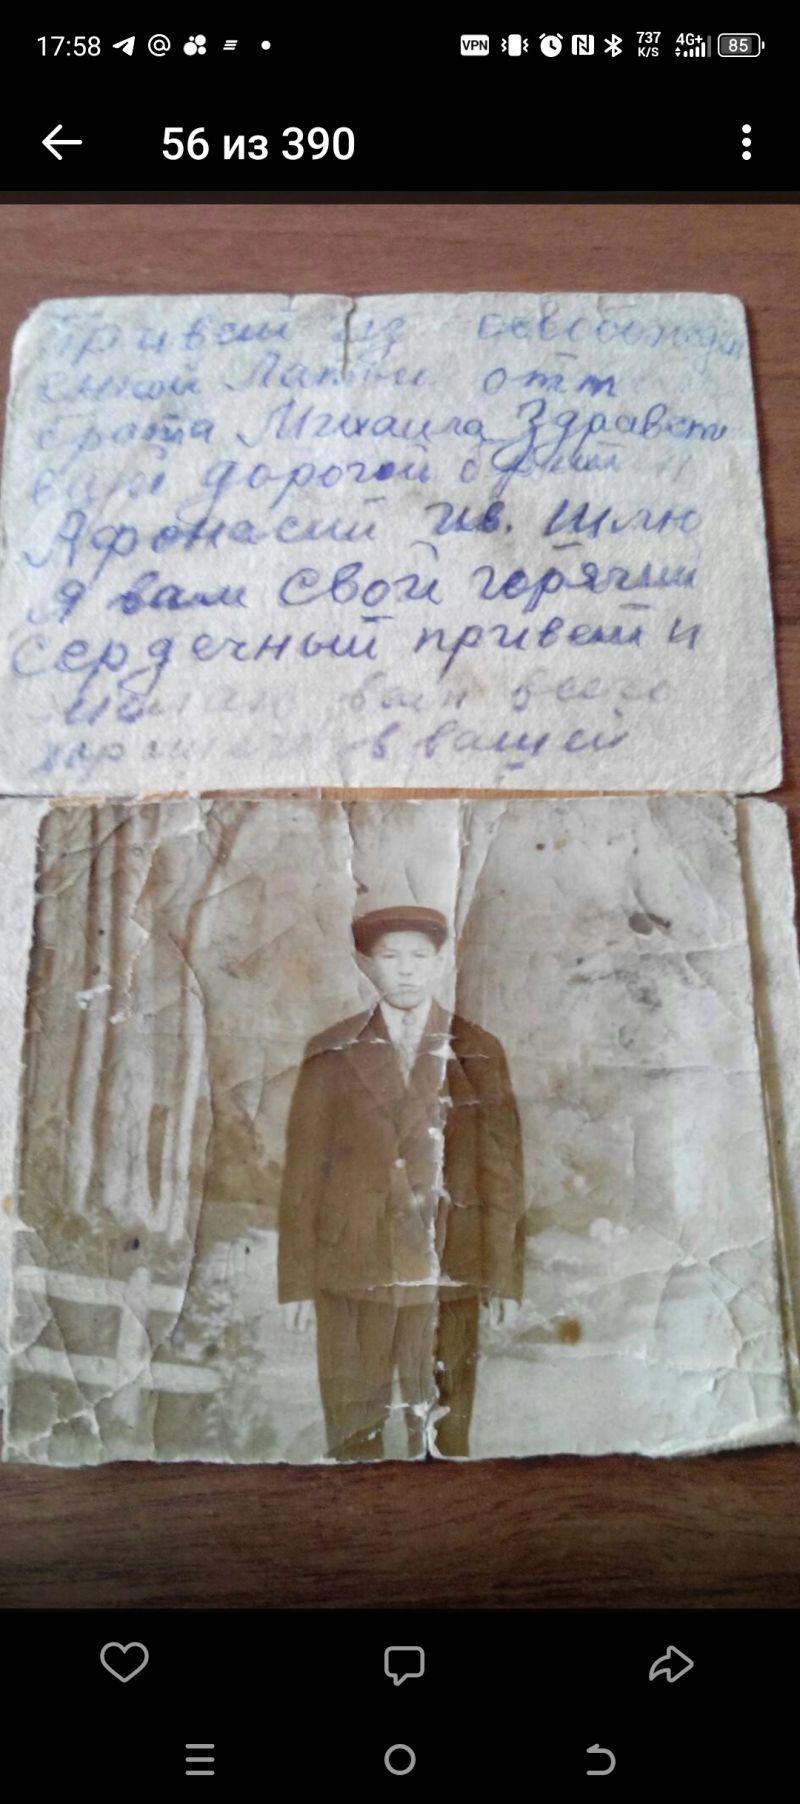 17:58
VPN
737 K/S
4G+
85
56 из 390
Привет из освобожде
енной Латвии отт
брата Михаила Здравств
вуй дорогой братт
Афонасий Ив. шлю
я вам свой горячий
сердечный привет и
желаю вам всего
хорошего в вашей